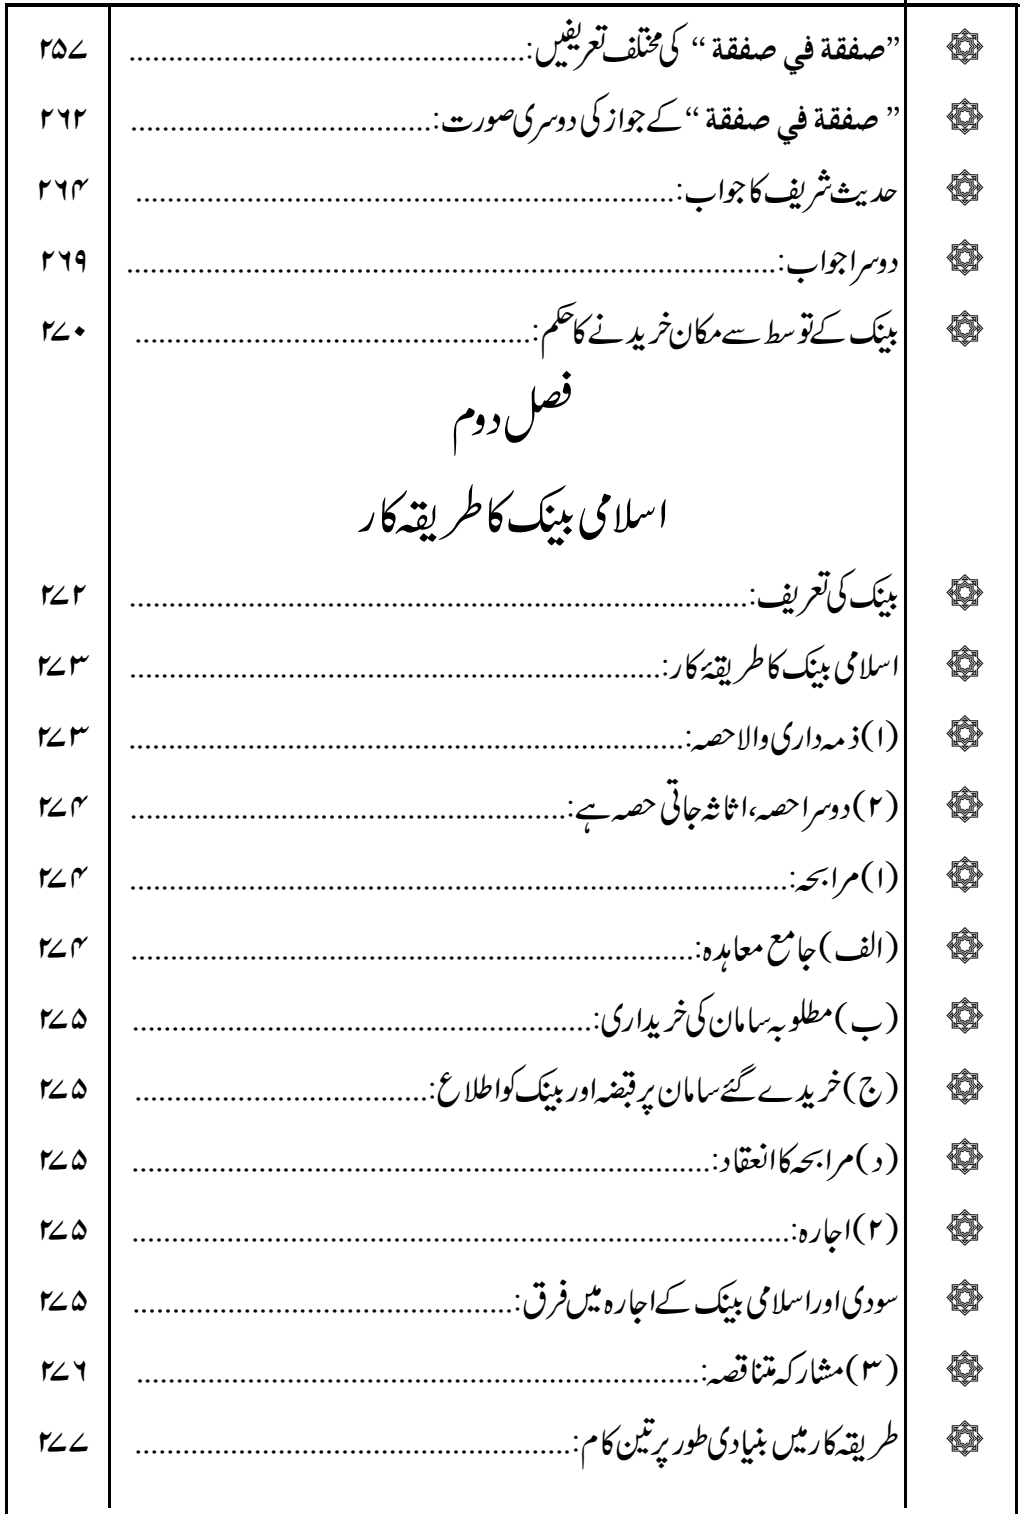 ”صفقة في صفقة“ کی مختلف تعریفیں:.................................................. ۲۵۷
”صفقة في صفقة“ کے جواز کی دوسری صورت:...................................... ۲۶۲
حدیث شریف کا جواب:.................................................................... ۲۶۴
دوسرا جواب:.................................................................................. ۲۶۹
بینک کے توسط سے مکان خریدنے کا حکم:.................................................. ۲۷۰
فصل دوم
اسلامی بینک کا طریقہ کار
بینک کی تعریف:.............................................................................. ۲۷۲
اسلامی بینک کا طریقۂ کار:................................................................... ۲۷۳
(۱) ذمہ داری والا حصہ:...................................................................... ۲۷۳
(۲) دوسرا حصہ، اثاثہ جاتی حصہ ہے:....................................................... ۲۷۴
(۱) مرابحہ:................................................................................... ۲۷۴
(الف) جامع معاہدہ:....................................................................... ۲۷۴
(ب) مطلوبہ سامان کی خریداری:.......................................................... ۲۷۵
(ج) خریدے گئے سامان پر قبضہ اور بینک کو اطلاع:..................................... ۲۷۵
(د) مرابحہ کا انعقاد:......................................................................... ۲۷۵
(۲) اجارہ:................................................................................... ۲۷۵
سودی اور اسلامی بینک کے اجارہ میں فرق:................................................ ۲۷۵
(۳) مشارکہ متناقصہ:....................................................................... ۲۷۶
طریقہ کار میں بنیادی طور پر تین کام:....................................................... ۲۷۷